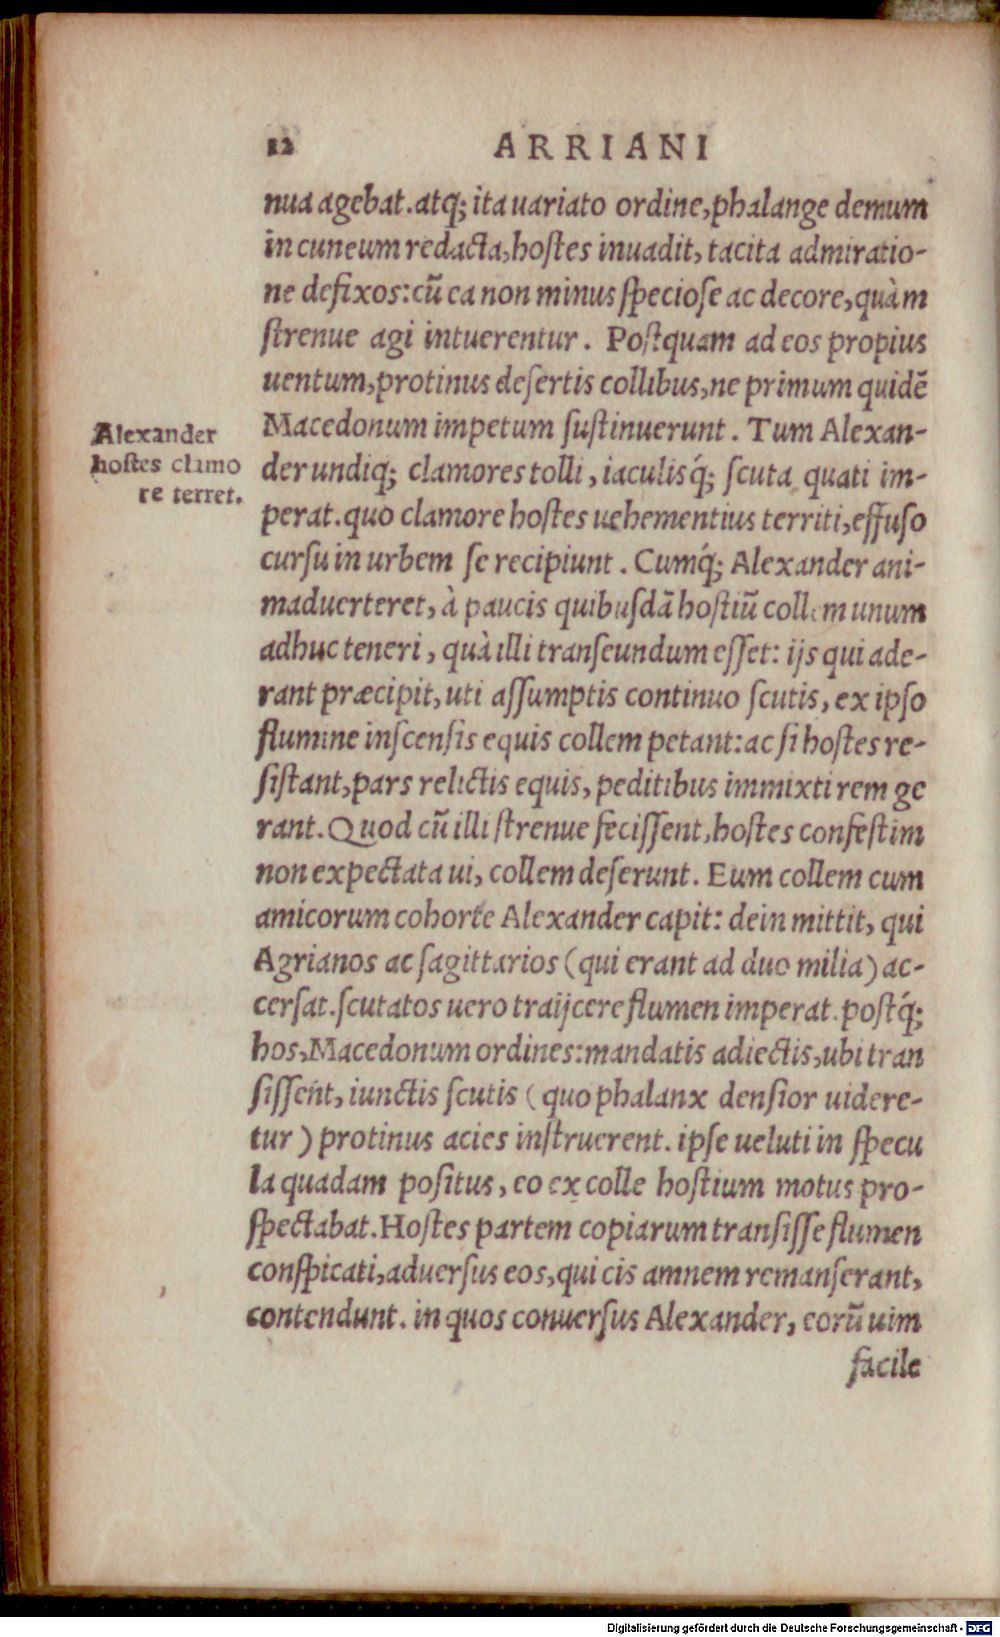 12 ARRIANI
nua agebat. atq; ita uariato ordine, phalange demum
in cuneum redacta, hostes inuadit, tacita admiratio-
ne defixos: cū ea non minus speciose ac decore, quàm
strenue agi intuerentur. Postquam ad eos propius
uentum, protinus desertis collibus, ne primum quidē
Macedonum impetum sustinuerunt. Tum Alexan-
der undiq; clamores tolli, iaculisq́; scuta quati im-
perat. quo clamore hostes uehementius territi, effuso
cursu in urbem se recipiunt. Cumq́; Alexander ani-
maduerteret, à paucis quibusdā hostiū collem unum
adhuc teneri, quà illi transeundum esset: ijs qui ade-
rant præcipit, uti assumptis continuo scutis, ex ipso
flumine inscensis equis collem petant: ac si hostes re-
sistant, pars relictis equis, peditibus immixti rem ge
rant. Quod cū illi strenue fecissent, hostes confestim
non expectata ui, collem deserunt. Eum collem cum
amicorum cohorte Alexander capit: dein mittit, qui
Agrianos ac sagittarios (qui erant ad duo milia) ac-
cersat. scutatos uero traijcere flumen imperat. postq́;
hos, Macedonum ordines: mandatis adiectis, ubi tran
sissent, iunctis scutis (quo phalanx densior uidere-
tur) protinus acies instruerent. ipse ueluti in specu
la quadam positus, eo ex colle hostium motus pro-
spectabat. Hostes partem copiarum transisse flumen
conspicati, aduersus eos, qui cis amnem remanserant,
contendunt. in quos conuersus Alexander, eorū uim
facile
Alexander
hostes clamo
re terret.
Digitalisierung gefördert durch die Deutsche Forschungsgemeinschaft - DFG